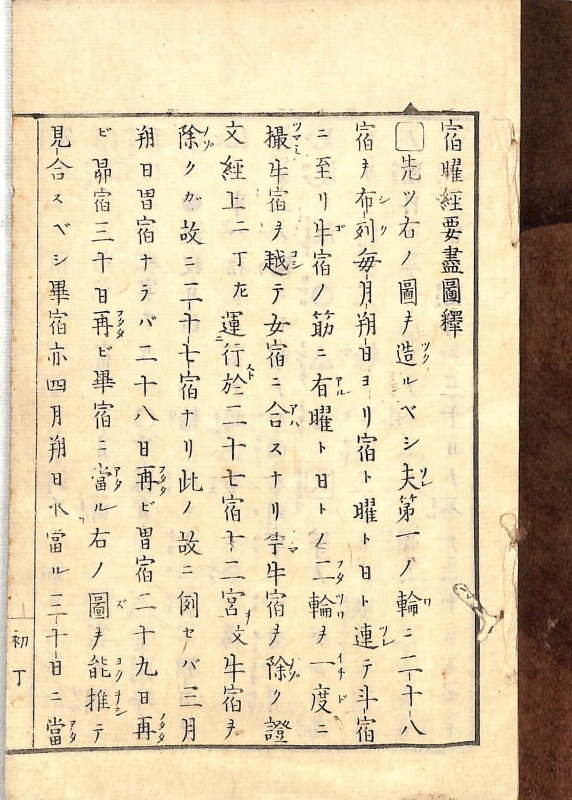 宿曜經要盡圖釋
先ツ右ノ圖ヲ造ルベシ夫第一ノ輪ニ二十八
宿ヲ布列毎月朔日ヨリ宿ト曜ト日ト連テ斗宿
ニ至リ牛宿ノ筋ニ有曜ト日トノ二輪ヲ一度ニ
撮牛宿ヲ越テ女宿ニ合スナリ牛宿ヲ除ク證
文經上二丁左運行於二十七宿十二宮文牛宿ヲ
除クガ故ニ二十七宿ナリ此ノ故ニ例セバ三月
朔日胃宿ナラバ二十八日再ビ胃宿二十九日再
ビ昴宿三十日再ビ畢宿ニ當ル右ノ圖ヲ能推テ
見合スベシ畢宿亦四月朔日ホ當ル三十日ニ當
初丁